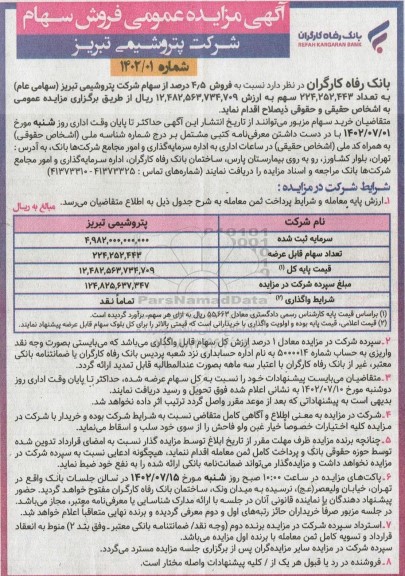 آگهی مزایده عمومی فروش سهام
شرکت پتروشیمی تبریز
شماره ۱۴۰۲/۰۱
بانک رفاه کارگران
REFAH KARGARAN BANK
بانک رفاه کارگران در نظر دارد نسبت به فروش ۴٫۵ درصد از سهام شرکت پتروشیمی تبریز (سهامی عام)
به تعداد ۲۲۴,۲۵۲,۴۴۳ سهم به ارزش ۱۲,۴۸۲,۵۶۳,۷۳۴,۷۰۹ ریال از طریق برگزاری مزایده عمومی
به اشخاص حقیقی و حقوقی ذیصلاح اقدام نماید.
متقاضیان خرید سهام مزبور می‌توانند از تاریخ انتشار این آگهی حداکثر تا پایان وقت اداری روز شنبه مورخ
۱۴۰۲/۰۷/۰۱ با در دست داشتن معرفی‌نامه کتبی مشتمل بر درج شماره شناسه ملی (اشخاص حقوقی)
به همراه کد ملی (اشخاص حقیقی) در ساعات اداری به اداره سرمایه‌گذاری و امور مجامع شرکت‌ها بانک، به آدرس :
تهران، بلوار کشاورز، رو به روی بیمارستان پارس، ساختمان بانک رفاه کارگران، اداره سرمایه‌گذاری و امور مجامع
شرکت‌ها بانک مراجعه و اسناد مزایده را دریافت نمایند (شماره‌های تماس : ۴۱۳۷۳۳۲۵ - ۴۱۳۷۳۳۱۰)
شرایط شرکت در مزایده :
۱. ارزش پایه معامله و شرایط پرداخت ثمن معامله به شرح جدول ذیل به اطلاع متقاضیان می‌رسد. مبالغ به ریال
نام شرکت پتروشیمی تبریز
سرمایه ثبت شده ۴,۹۸۲,۰۰۰,۰۰۰,۰۰۰
تعداد سهام قابل عرضه ۲۲۴,۲۵۲,۴۴۳
قیمت پایه کل (۱) ۱۲,۴۸۲,۵۶۳,۷۳۴,۷۰۹
مبلغ سپرده شرکت در مزایده ۱۲۴,۸۲۵,۶۳۷,۳۴۷
شرایط واگذاری (۲) تماماً نقد
(۱) براساس قیمت پایه کارشناس رسمی دادگستری معادل ۵۵,۶۶۳ ریال به ازای هر سهم، برآورد گردیده است.
(۲) قیمت اعلامی، قیمت پایه بوده و اولویت واگذاری با خریدارانی است که قیمتی بالاتر را برای کل بلوک سهام قابل عرضه پیشنهاد نمایند.
۲. سپرده شرکت در مزایده معادل ۱ درصد ارزش کل سهام قابل واگذاری می‌باشد که می‌بایستی بصورت وجه نقد
واریزی به حساب شماره ۵۰۰۰۰۱۴ به نام اداره حسابداری نزد شعبه پردیس بانک رفاه کارگران یا ضمانتنامه بانکی
معتبر، غیر از بانک رفاه کارگران با اعتبار سه ماهه بصورت عندالمطالبه قابل تمدید ارائه گردد.
۳. متقاضیان می‌بایست پیشنهادات خود را نسبت به کل سهام عرضه شده، حداکثر تا پایان وقت اداری روز
دوشنبه مورخ ۱۴۰۲/۰۷/۱۰ به نشانی اعلام شده فوق تحویل و رسید دریافت نمایند.
بدیهی است به پیشنهاداتی که بعد از موعد مقرر واصل گردد ترتیب اثر داده نخواهد شد.
۴. شرکت در مزایده به معنی اطلاع و آگاهی کامل متقاضی نسبت به شرایط شرکت بوده و خریدار با شرکت در
مزایده کلیه اختیارات خصوصاً خیار غبن ولو فاحش را از سوی خود سلب و اسقاط می‌نماید.
۵. چنانچه برنده مزایده ظرف مهلت مقرر از تاریخ ابلاغ توسط مزایده گذار نسبت به امضای قرارداد تدوین شده
توسط حوزه حقوقی بانک و پرداخت کامل ثمن معامله اقدام ننماید، هیچگونه ادعایی نسبت به سپرده شرکت در
مزایده نخواهد داشت و مزایده‌گذار می‌تواند ضمانت‌نامه بانکی ارائه شده را به نفع خود ضبط نماید.
۶. پاکت‌های مزایده در ساعت ۱۰:۰۰ صبح روز شنبه مورخ ۱۴۰۲/۰۷/۱۵ در سالن جلسات بانک واقع در
تهران، خیابان ولیعصر(عج)، نرسیده به میدان ونک، ساختمان بانک رفاه کارگران مفتوح خواهد گردید. حضور
پیشنهاد دهندگان یا نماینده قانونی آنان در جلسه با ارائه مدارک شناسایی یا معرفی‌نامه معتبر، مجاز می‌باشد.
در جلسه مزبور صرفاً خریداران حائز رتبه‌های اول و دوم معرفی گردیده و برنده نهایی متعاقباً اعلام خواهد شد.
۷. استرداد سپرده شرکت در مزایده برنده دوم (وجه نقد/ ضمانتنامه بانکی معتبر ـ وفق بند ۲) منوط به انعقاد
قرارداد و تسویه کامل ثمن معامله با برنده اول مزایده می‌باشد.
سپرده شرکت در مزایده سایر مزایده‌گران پس از برگزاری جلسه مزایده مسترد می‌گردد.
۸. فروشنده در رد یا قبول هر یک از / کلیه پیشنهادات واصله مختار است.